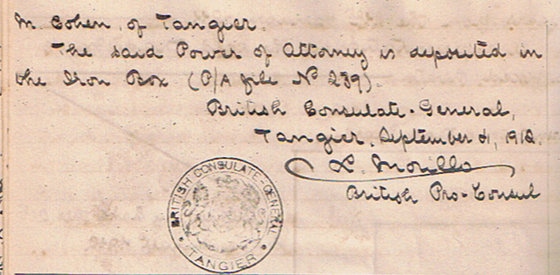 M. Cohen, of Tangier.
The said Power of Attorney is deposited in
the Iron Box (P/A file Nº 239).
British Consulate-General,
Tangier, September 4, 1918.
British Pro-Consul
BRITISH CONSULATE-GENERAL
• TANGIER •